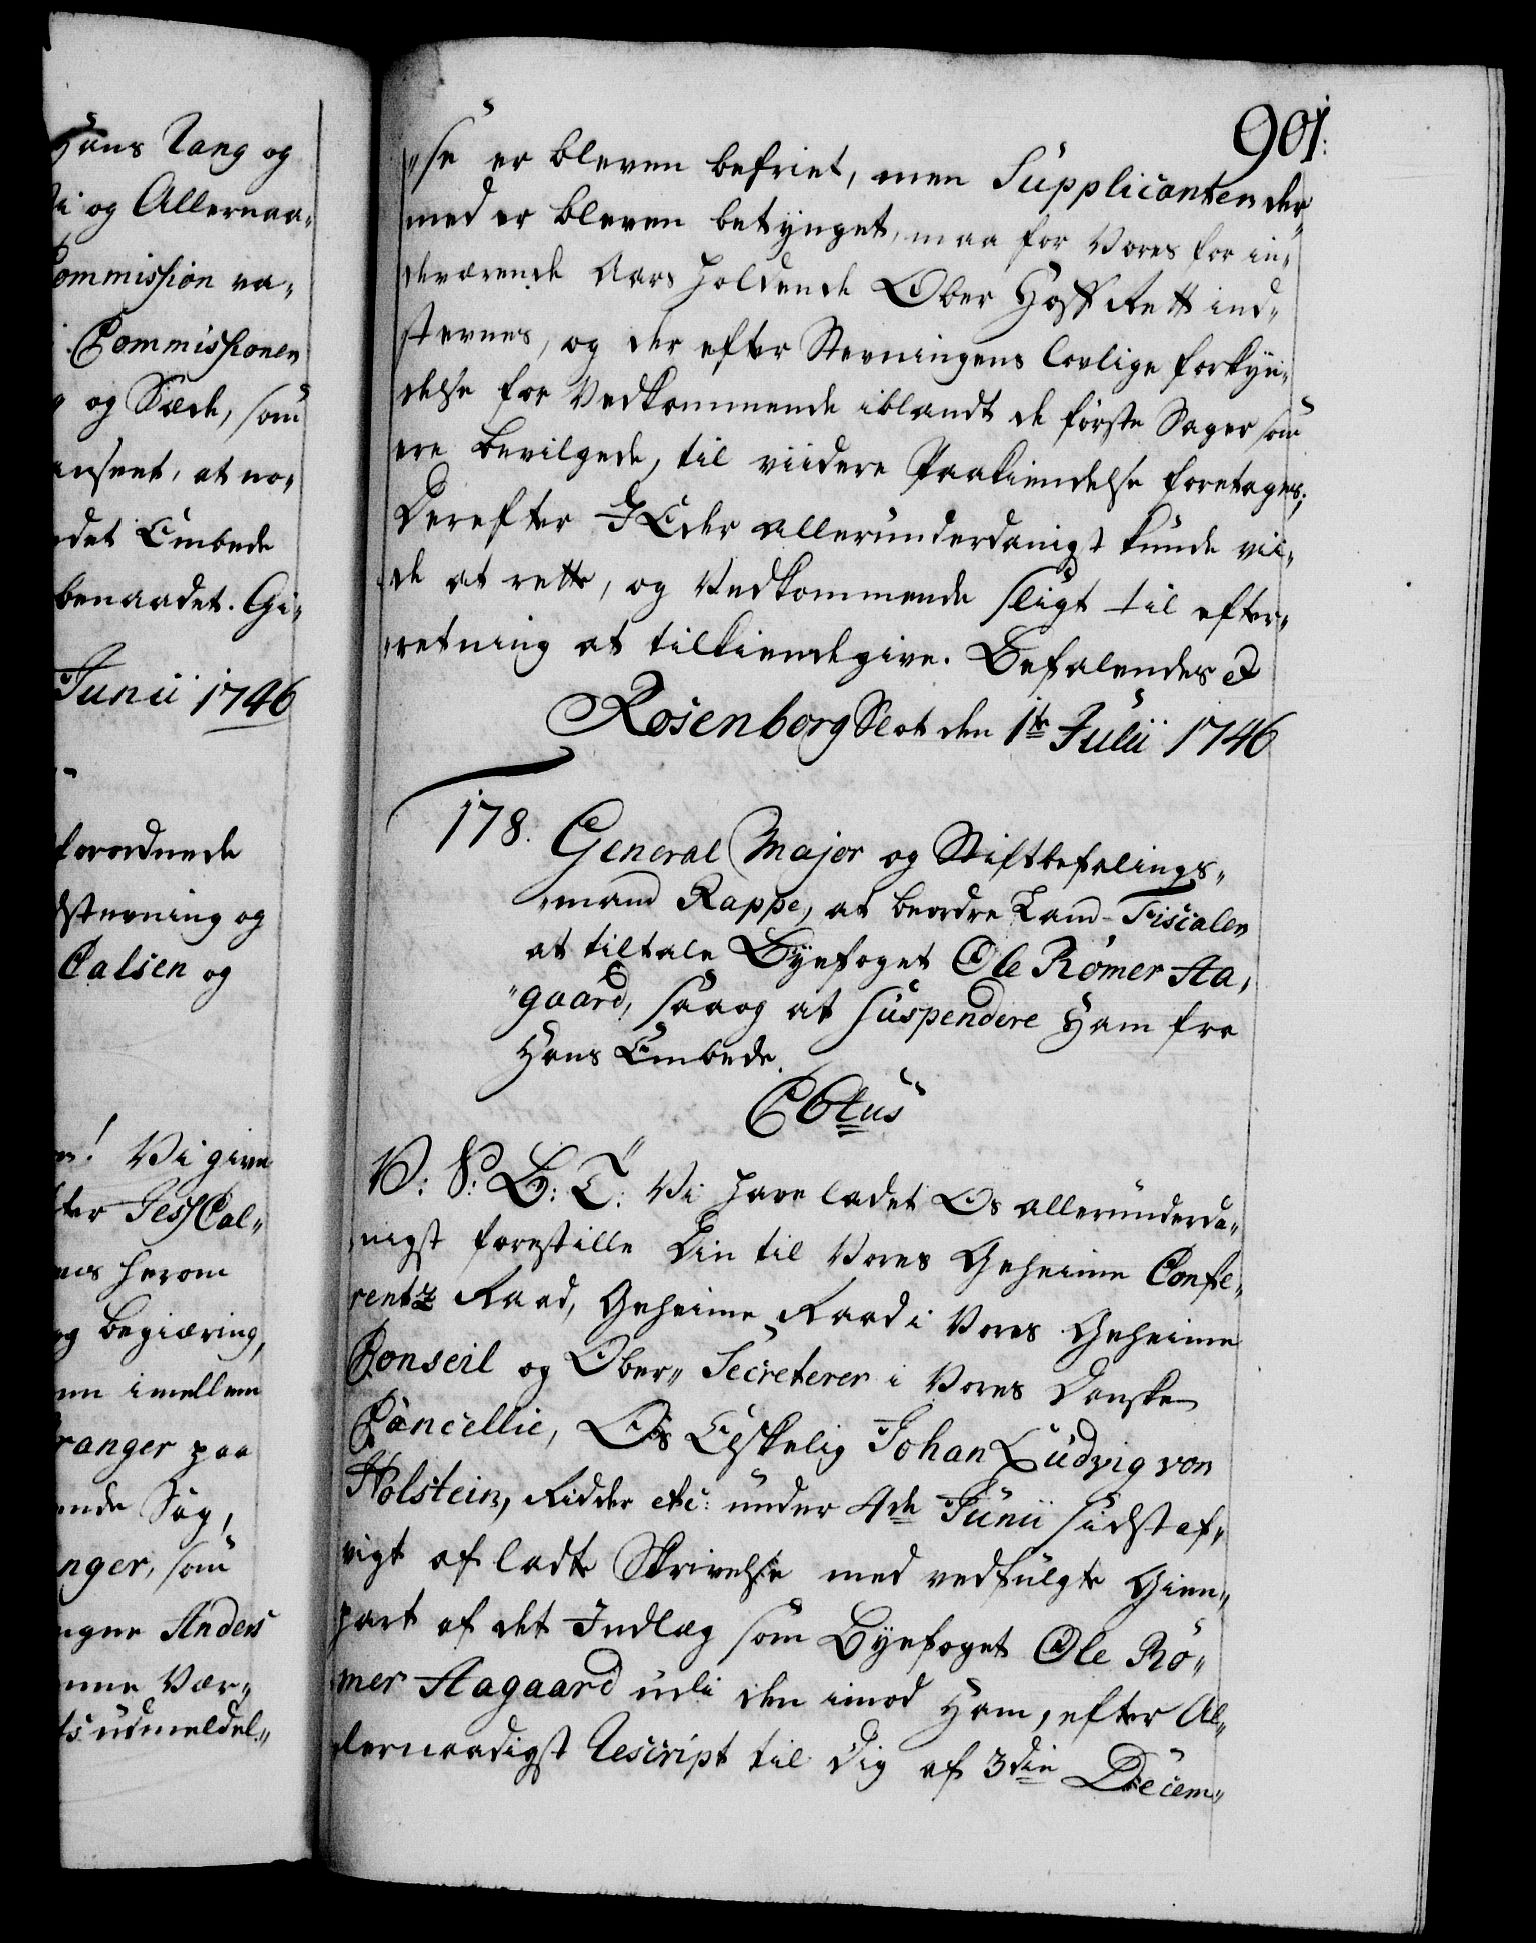 Hans Tang og
i og Allernaa„
Commission va„
Commissionen
og Sæde, som
anseet, at no„
det Embede
benaadet. Gi„
Junii 1746
forordnede
dstevning og
Calsen og
! Vi give
ter Jess Cal„
herom
og begiæring,
imellem
ranger paa
ende Sag,
nger, som
egne Anders
nne Vær„
ts udmeldel„
901.
„se er bleven befriet, men Supplicanten der„
med er bleven betynget, maa for Vores for in„
deværende Aars holdende Ober Hoff Rett ind„
stevnes, og der efter Stevningens lovlige forkyn„
delse for Vedkommende iblandt de første Sager som
ere bevilgede, til viidere Paakiendelse foretages;
Derefter I Eder allerunderdanigst kunde vii„
de at rette, og Vedkommende sligt til efter„
„retning at tilkiendegive. Befalendes &
Rosenborg Slot den 1te Julii 1746
178. General Major og Stiftbefalings„
„mand Rappe, at beordre Land-Fiscalen
at tiltale Byefoget Ole Römer Aa„
„gaard, saa og at suspendere Ham fra
Hans Embede.
C6tus
V: S: B: T: Vi have ladet Os allerunderda„
nigst forestille Din til Vores Geheime Confe„
rentz Raad, Geheime Raad i Vores Geheime
Conseil og Ober„ Secreterer i Vores Danske
Cancellie, Os Elskelig Johan Ludvig von
Holstein, Ridder etc: under 4de Junii sidst af„
vigt af ladte Skrivelse med vedfulgte Gien„
part af det Indlæg som Byefoget Ole Rö„
mer Aagaard udi den imod Ham, efter Al„
lernaadigst Rescript til Dig af 3die Decem„